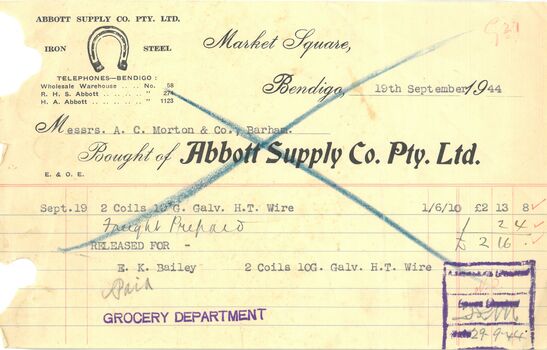 ABBOTT SUPPLY CO. PTY. LTD.
IRON STEEL
TELEPHONES—BENDIGO:
Wholesale Warehouse . . . No. 58
R. H. S. Abbott . . . . . . . " 274
H. A. Abbott . . . . . . . . " 1123
Market Square,
Bendigo, 19th September, 1944
Messrs. A. C. Morton & Co., Barham.
Bought of Abbott Supply Co. Pty. Ltd.
E. & O. E.
Sept.19 2 Coils 10 G. Galv. H.T. Wire 1/6/10 £2 13 8
Fraight Prepaid 2 4
RELEASED FOR - £ 2 16 .
E. K. Bailey 2 Coils 10G. Galv. H.T. Wire
Paid
GROCERY DEPARTMENT
29-9-44